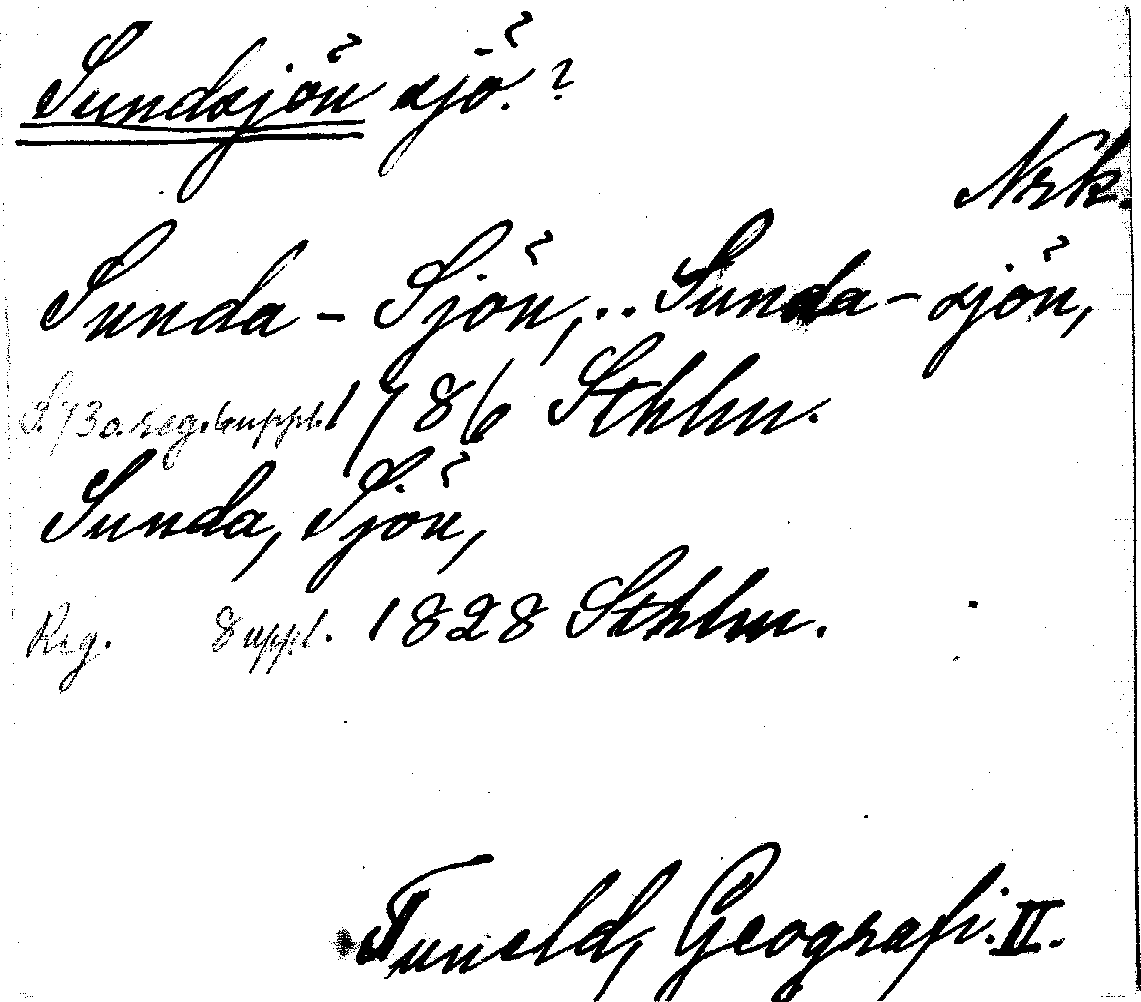 Sundsjön sjö. ?
Nrk.
Sunda - Sjön, .. Sunda - sjön,
S. 73 a. reg. suppl. 1786 Sthlm.
Sunda, Sjön,
Reg. Suppl. 1828 Sthlm.
Tuneld, Geografi. II.